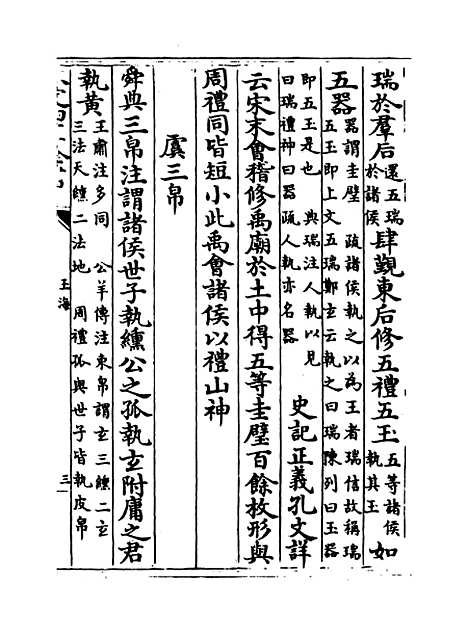 瑞於羣后還五瑞於諸侯肆覲東后修五禮五玉五等諸侯執其玉如
五器器謂圭璧 疏諸侯執之以為王者瑞信故稱瑞五玉即上文五瑞鄭玄云執之曰瑞陳列曰玉器
即五玉是也 典瑞注人執以見曰瑞禮神曰器疏人執亦名器 史記正義孔文詳
云宋末會稽修禹廟於土中得五等圭璧百餘枚形與
周禮同皆短小此禹會諸侯以禮山神
虞三帛
舜典三帛注謂諸侯世子執纁公之孤執玄附庸之君
執黄王肅注多同 公羊傳注束帛謂玄三纁二玄三法天纁二法地 周禮孤與世子皆執皮帛
玉海